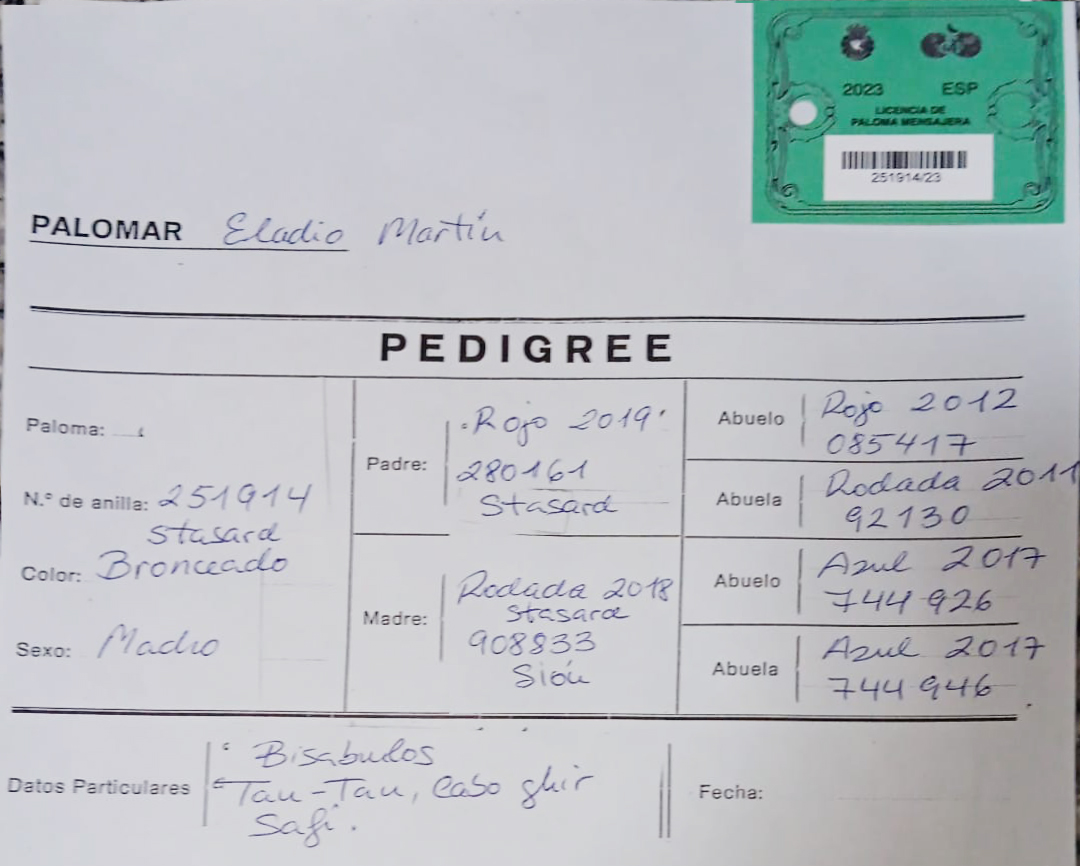 2023 ESP
LICENCIA DE
PALOMA MENSAJERA
251914/23
PALOMAR Eladio Martín
PEDIGREE
Paloma:
N.º de anilla: 251914
Stasard
Color: Bronceado
Sexo: Macho
Padre: Rojo 2019
280161
Stasard
Madre: Rodada 2018
Stasard
908833
Sión
Abuelo Rojo 2012
085417
Abuela Rodada 2011
92130
Abuelo Azul 2017
744926
Abuela Azul 2017
744946
Datos Particulares Bisabuelos
Tau-Tau, Cabo ghir
Safi.
Fecha: